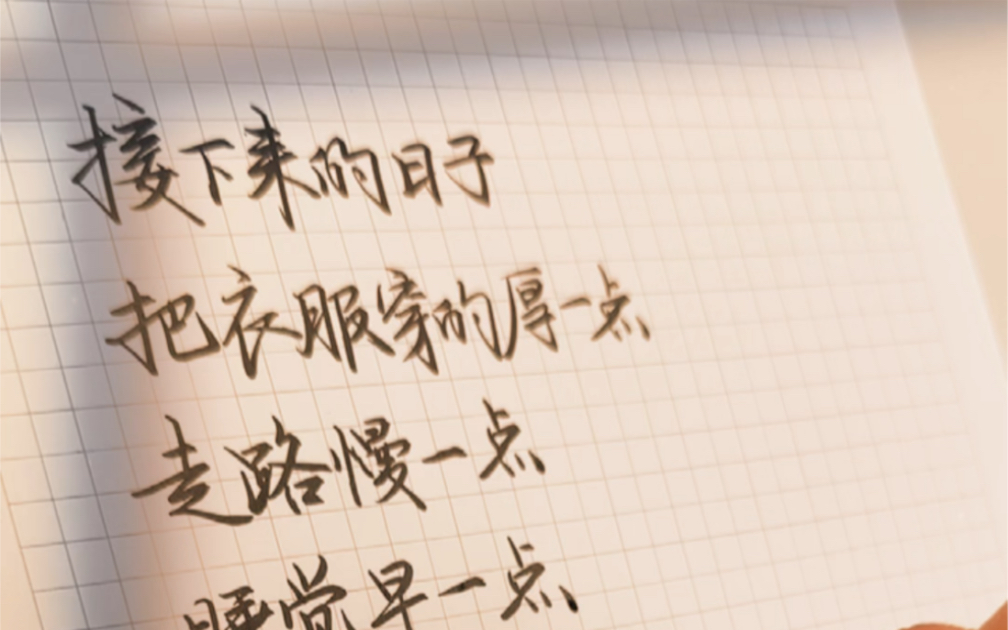 接下来的日子
把衣服穿的厚一点
走路慢一点
睡觉早一点